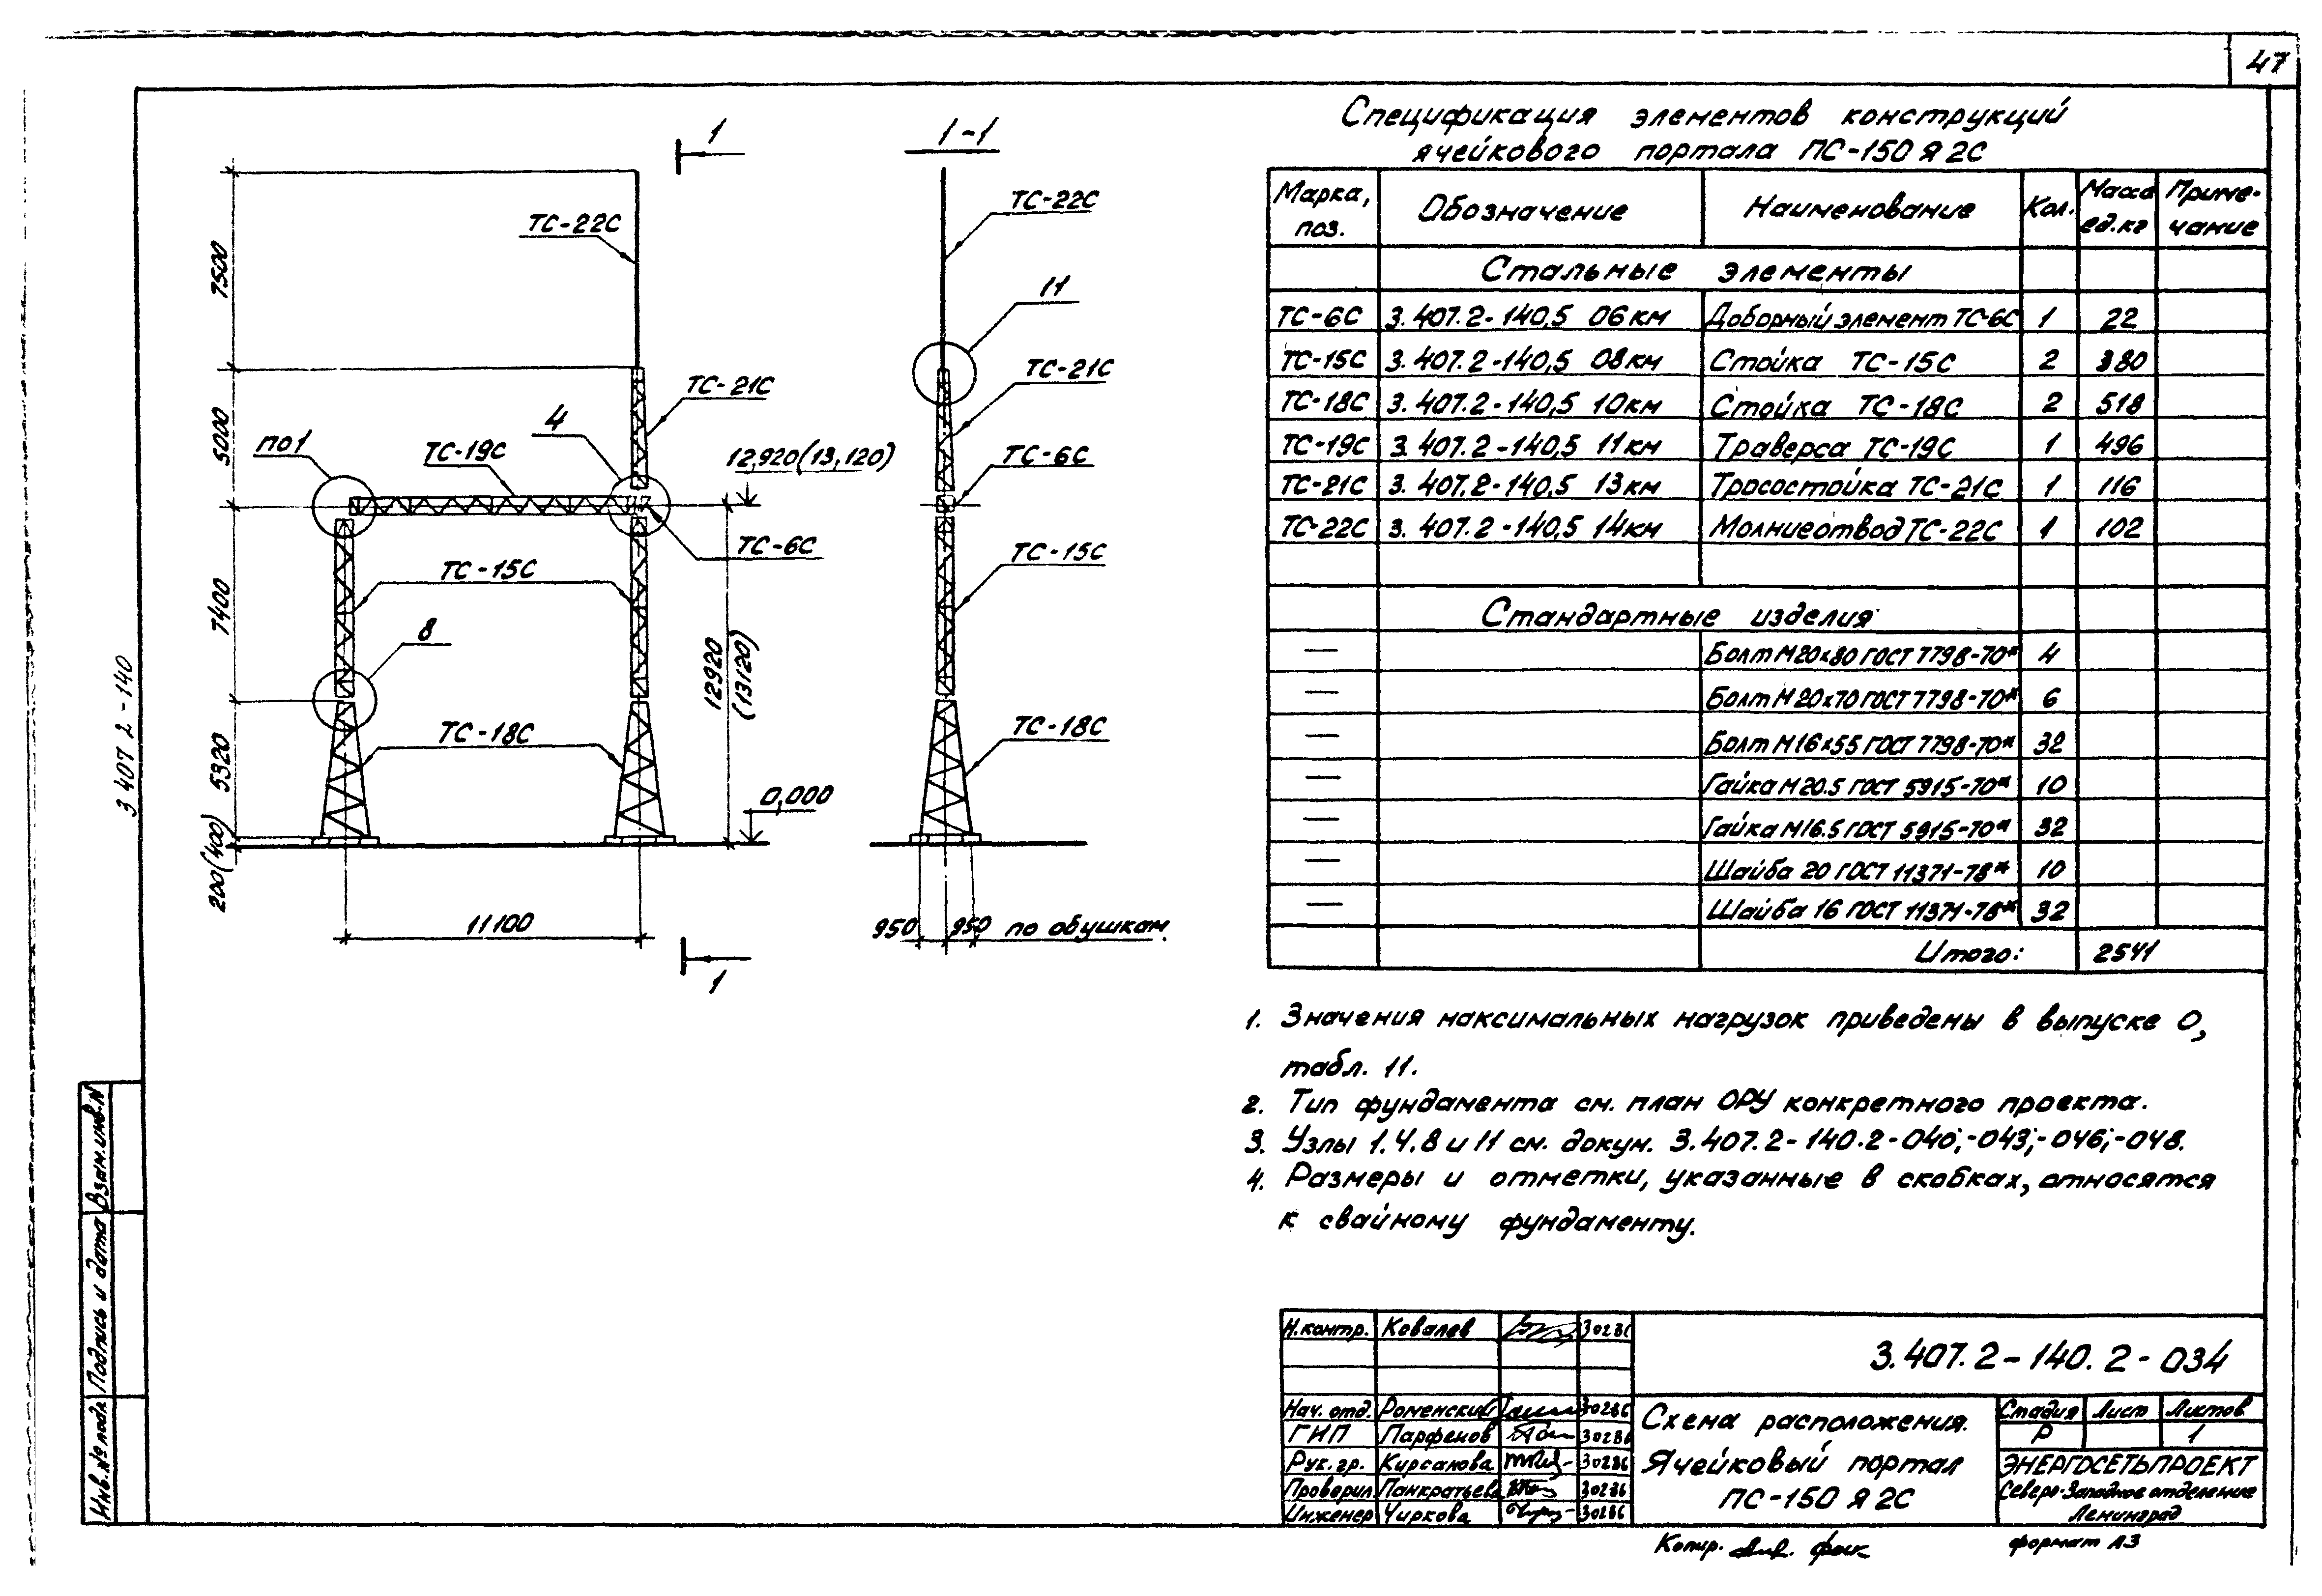 47
3 407 2-140
1
1-1
ТС-22С
ТС-22С
7500
11
ТС-21С
ТС-21С
4
5000
по1
ТС-19С
12,920(13,120)
ТС-6С
ТС-6С
ТС-15С
ТС-15С
7400
8
12920
(13120)
ТС-18С
ТС-18С
5320
0,000
200(400)
11100
950 950 по обушкам.
1
Спецификация элементов конструкций
ячейкового портала ПС-150 Я 2С
Марка, поз. Обозначение Наименование Кол. Масса ед.кг Приме-чание
Стальные элементы
ТС-6С 3.407.2-140,5 06км Доборный элемент ТС-6С 1 22
ТС-15С 3.407.2-140,5 08км Стойка ТС-15С 2 380
ТС-18С 3.407.2-140,5 10км Стойка ТС-18С 2 518
ТС-19С 3.407.2-140,5 11км Траверса ТС-19С 1 496
ТС-21С 3.407.2-140,5 13км Тросостойка ТС-21С 1 116
ТС-22С 3.407.2-140,5 14км Молниеотвод ТС-22С 1 102
Стандартные изделия
— Болт М20х80 ГОСТ 7798-70* 4
— Болт М20х70 ГОСТ 7798-70* 6
— Болт М16х55 ГОСТ 7798-70* 32
— Гайка М20.5 ГОСТ 5915-70* 10
— Гайка М16.5 ГОСТ 5915-70* 32
— Шайба 20 ГОСТ 11371-78* 10
— Шайба 16 ГОСТ 11371-78* 32
Итого: 2541
1. Значения максимальных нагрузок приведены в выпуске 0,
табл. 11.
2. Тип фундамента см. план ОРУ конкретного проекта.
3. Узлы 1.4.8 и 11 см. докум. 3.407.2-140.2-040;-043;-046;-048.
4. Размеры и отметки, указанные в скобках, относятся
к свайному фундаменту.
Взам.инв.N
Подпись и дата
Инв.№ подл
Н.контр. Ковалев 30286
3.407.2-140.2-034
Нач. отд. Роменский 30286
ГИП Парфенов 30286
Рук. гр. Кирсанова 30286
Проверил Панкратьева 30286
Инженер Чиркова 30286
Схема расположения.
Ячейковый портал
ПС-150 Я 2С
Стадия Лист Листов
Р 1
ЭНЕРГОСЕТЬПРОЕКТ
Северо-Западное отделение
Ленинград
Копир.
формат А3